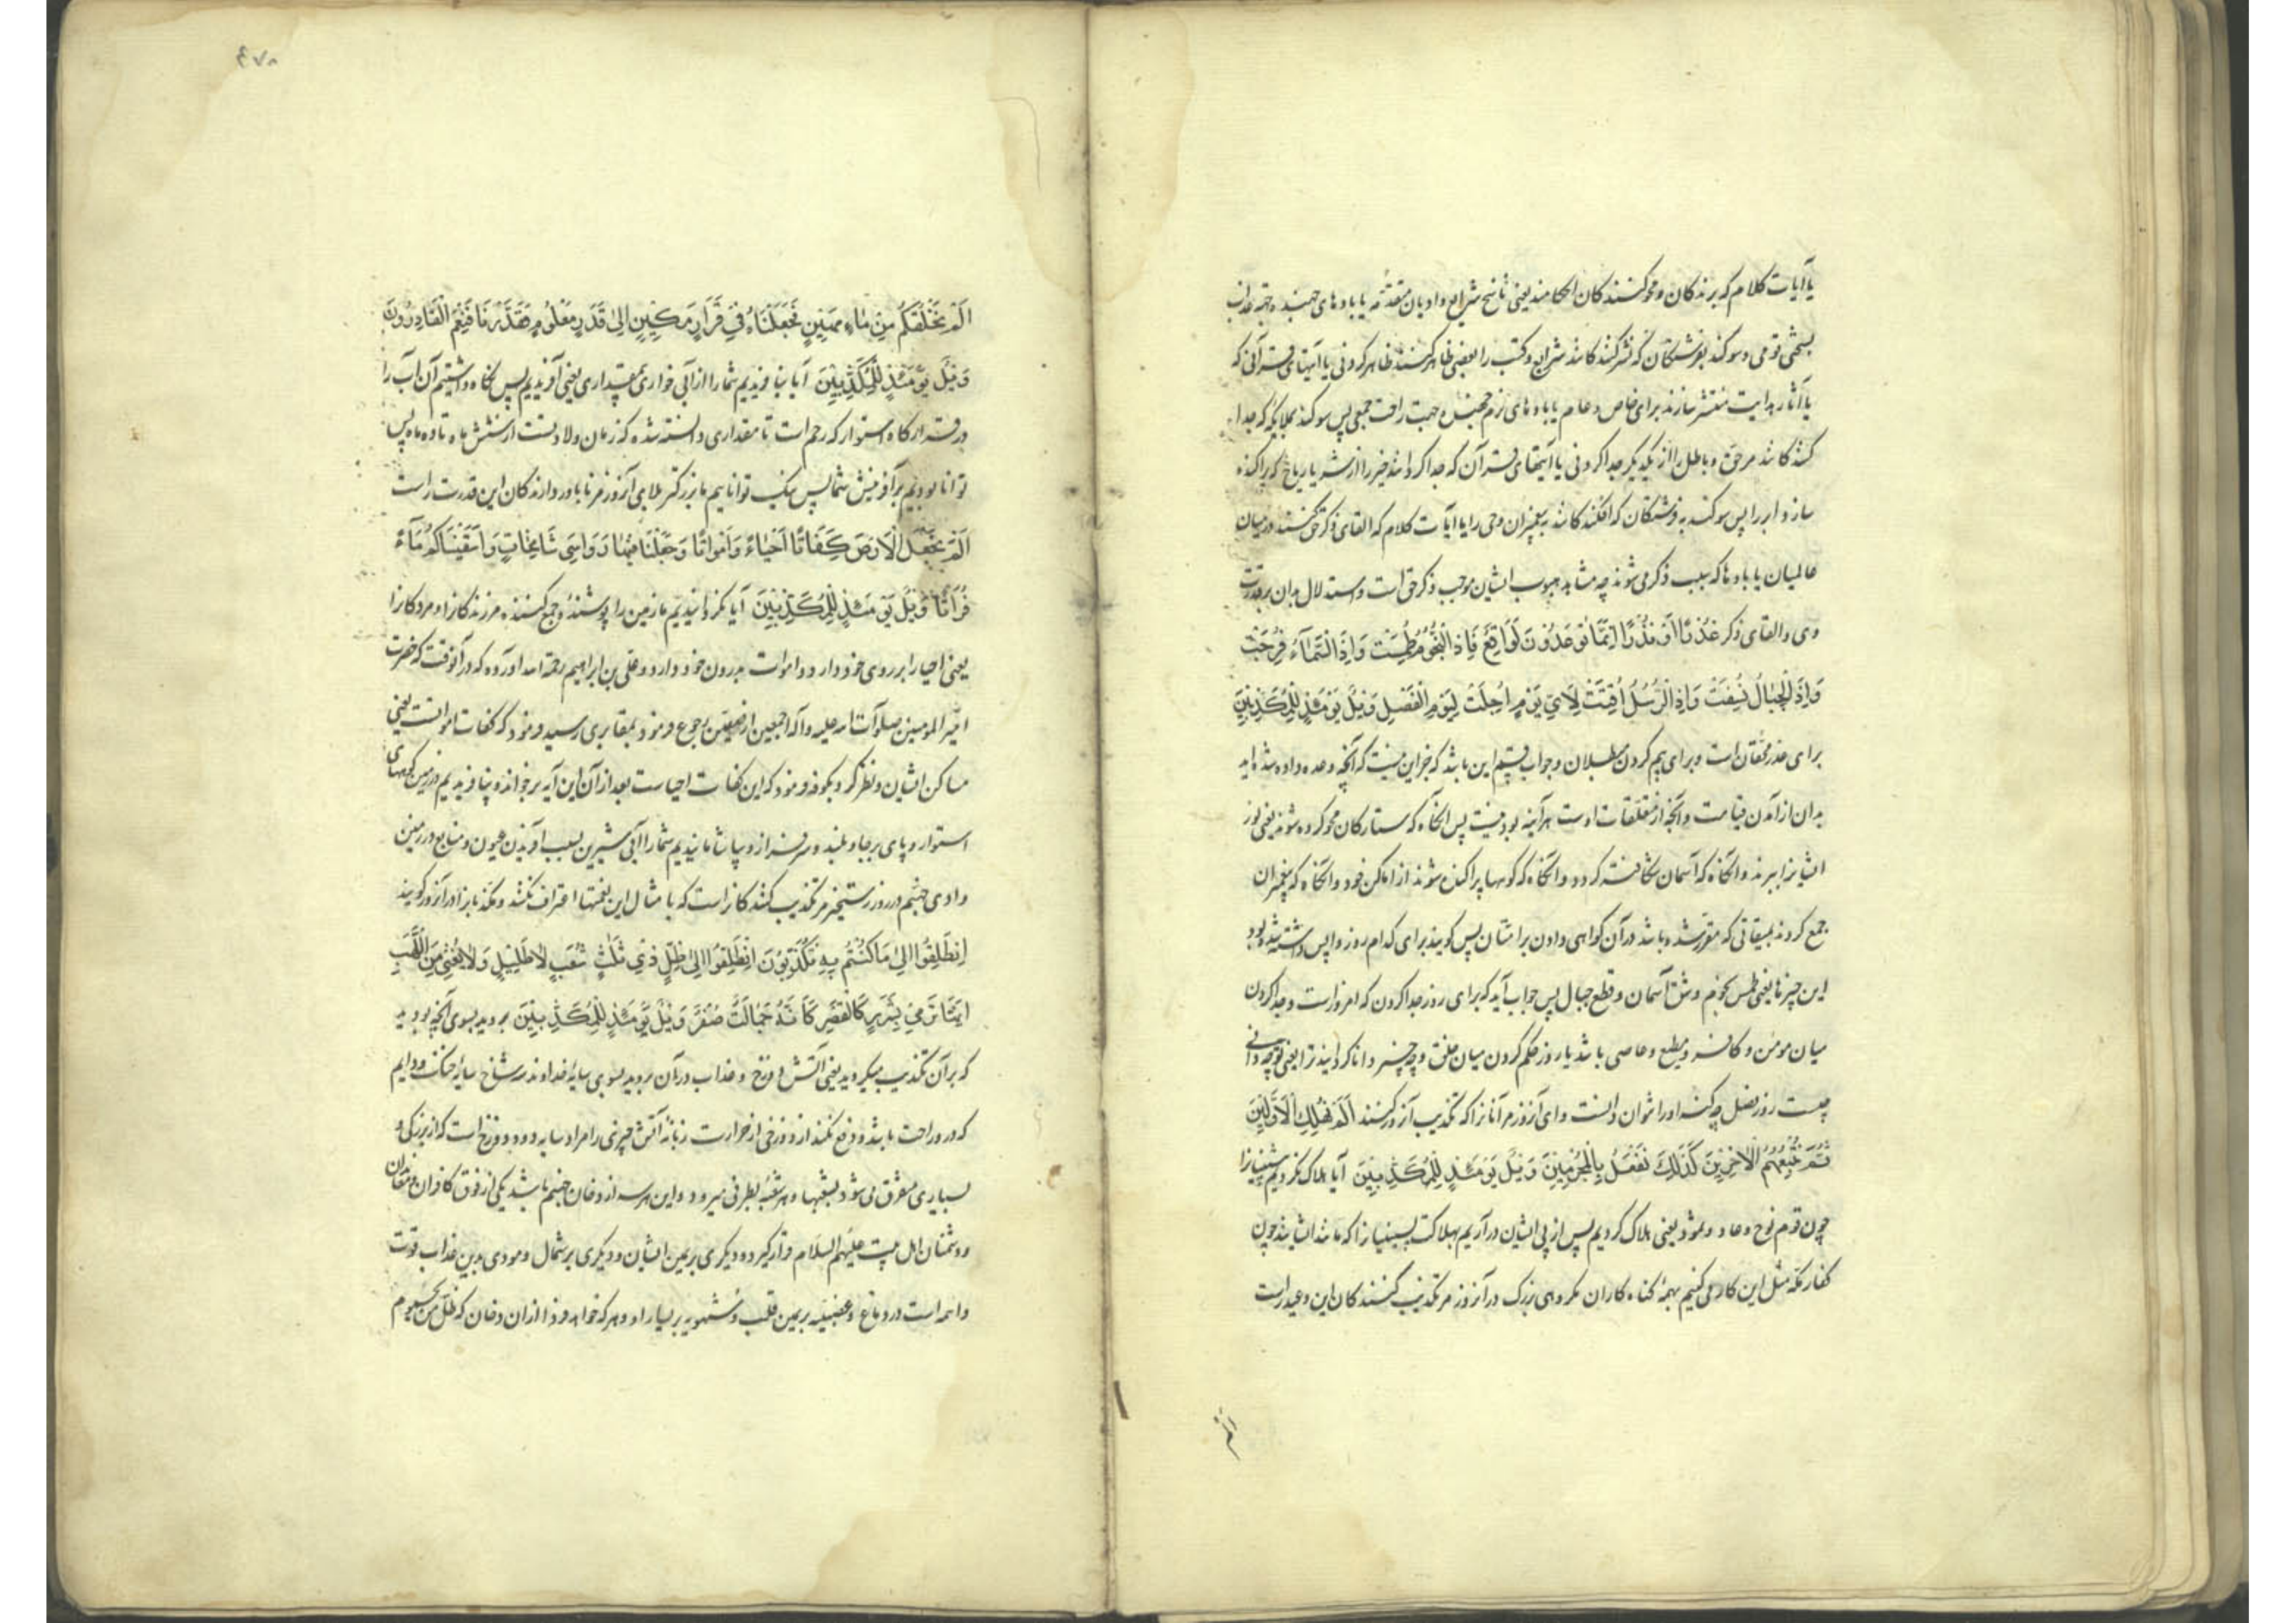 یا آیات کلام که برندکان و محو کنندکان احکامند یعنی ناسخ شرایع و ادیان متقدمه یا بادهای جهنده بجهة عذاب
بسختی قومی و سوکند بفرشتکان که نشر کنندکانند شرایع و کتب را بعضی ظاهر کنند ظاهر کردنی یا آیتهای قرآنی که
یا آثار هدایت منتشر سازند برای خاص و عام یا بادهای نرم جهنده بجهت رافت جمعی پس سوکند بملائکه که جدا
کنندکانند مر حق و باطل را از یکدیکر جدا کردنی یا آیتهای قرآن که جدا کردانند خیر را از شر یا ریاح که پراکنده
سازد ابر را پس سوکند به فرشتکان که افکنندکانند به پیغمبران وحی را یا آیات کلام که القای ذکر حق کنند در میان
عالمیان یا بادها که سبب ذکر می شوند چه مشاهد هبوب ایشان موجب ذکر حق است و استدلال بدان بر قدرت
وی و القای ذکر عُذْرًا اَوْ نُذْرًا اِنَّمَا تُوعَدُونَ لَوَاقِعٌ فَاِذَا النُّجُومُ طُمِسَتْ وَاِذَا السَّمَآءُ فُرِجَتْ
وَاِذَا الْجِبَالُ نُسِفَتْ وَاِذَا الرُّسُلُ اُقِّتَتْ لِاَيِّ يَوْمٍ اُجِّلَتْ لِيَوْمِ الْفَصْلِ وَيْلٌ يَوْمَئِذٍ لِلْمُكَذِّبِينَ
برای عذر محقانست و برای بیم کردن مبطلان و جواب قسم این باشد که جز این نیست که آنچه وعده داده شده اید
بدان از آمدن قیامت و آنچه از متعلقات اوست هر آینه بودنیست پس آنکاه که ستارکان محو کرده شوند یعنی نور
ایشانرا ببرند و آنکاه که آسمان شکافته کردد و آنکاه که کوهها پراکنده شوند از اماکن خود و آنکاه که پیغمبران
جمع کردند بمیقاتی که مقرر شده باشد در آن کواهی دادن بر امتان پس کویند برای کدام روز واپس داشته شده بود
این چیزها یعنی طمس نجوم و شق آسمان و قطع جبال پس جواب آید که برای روز جدا کردن که امروزست و جدا کردن
میان مؤمن و کافر و مطیع و عاصی باشد یا روز حکم کردن میان خلق و چه چیز دانا کردانید ترا یعنی تو چه دانی
چیست روز فصل چه کنه او را نتوان دانست وای آنروز مر آنانرا که تکذیب آنروز کنند اَلَمْ نُهْلِكِ الْاَوَّلِينَ
ثُمَّ نُتْبِعُهُمُ الْاٰخِرِينَ كَذٰلِكَ نَفْعَلُ بِالْمُجْرِمِينَ وَيْلٌ يَوْمَئِذٍ لِلْمُكَذِّبِينَ آیا هلاک نکردیم پیشینیانرا
چون قوم نوح و عاد و ثمود یعنی هلاک کردیم پس از پی ایشان درآریم بهلاکت پسینیانرا که مانند ایشانند چون
کفار مکه مثل این کار می کنیم بهمه کناه کاران مکروهی بزرک در آنروز مر تکذیب کنندکان این وعید راست
الم
٤٧٨
اَلَمْ نَخْلُقْكُمْ مِنْ مَآءٍ مَهِينٍ فَجَعَلْنَاهُ فِي قَرَارٍ مَكِينٍ اِلٰى قَدَرٍ مَعْلُومٍ فَقَدَرْنَا فَنِعْمَ الْقَادِرُونَ
وَيْلٌ يَوْمَئِذٍ لِلْمُكَذِّبِينَ آیا نیافریدیم شما را از آبی خوار بیمقداری یعنی آفریدیم پس نکاه داشتیم آن آب را
در قرارکاه استوار که رحم است تا مقداری دانسته شده که زمان ولادتست از شش ماه تا نه ماه پس
توانا بودیم بر آفرینش شما پس نیک تواناییم ما بزرکتر بلای آنروز مر ناباور دارندکان این قدرت راست
اَلَمْ نَجْعَلِ الْاَرْضَ كِفَاتًا اَحْيَاءً وَاَمْوَاتًا وَجَعَلْنَا فِيهَا رَوَاسِيَ شَامِخَاتٍ وَاَسْقَيْنَاكُمْ مَآءً
فُرَاتًا وَيْلٌ يَوْمَئِذٍ لِلْمُكَذِّبِينَ آیا نکردانیدیم ما زمین را پوشنده و جمع کننده مر زندکانرا و مردکانرا
یعنی احیا را بر روی خود دارد و اموات بدرون خود دارد و علی بن ابراهیم رحمة الله آورده که در آنوقت که حضرت
امیر المومنین صلوات الله علیه و آله اجمعین از صفین رجوع فرمود بمقابری رسید فرمود که کفات امواتست یعنی
مساکن ایشان و نظر کرد بکوفه فرمود که این کفات احیاست بعد از آن این آیه برخواند و بیافریدیم در زمین کوههای
استوار و پای برجا و بلند و سرفراز و بیاشامانیدیم شما را آبی شیرین بسبب آفریدن عیون و منابع در زمین
وادی جهنم در روز رستخیز مر تکذیب کنندکانراست که با مثال این نعمتها اعتراف نکنند و مکذبانرا در آنروز کویند
اِنْطَلِقُوا اِلٰى مَا كُنْتُمْ بِهِ تُكَذِّبُونَ اِنْطَلِقُوا اِلٰى ظِلٍّ ذِي ثَلٰثِ شُعَبٍ لَا ظَلِيلٍ وَلَا يُغْنِي مِنَ اللَّهَبِ
اِنَّهَا تَرْمِي بِشَرَرٍ كَالْقَصْرِ كَاَنَّهُ جِمَالَتٌ صُفْرٌ وَيْلٌ يَوْمَئِذٍ لِلْمُكَذِّبِينَ بروید بسوی آنچه بودید
که بر آن تکذیب میکردید یعنی آتش دوزخ و عذاب در آن بروید بسوی سایه خداوند سه شاخ سایه خنک و دایم
که درو راحت باشد و دفع نکند از دوزخی از حرارت زبانه آتش چیزی را مراد سایه دود دوزخ است که از بزرکی و
بسیاری متفرق می شود بشعبها و هر شعبه بطرفی میرود و این هر سه از دخان جهنم باشد یکی از فوق کافران و معاندان
و دشمنان اهل بیت علیهم السلام قرار کیرد و دیکری بر یمین ایشان و دیکری بر شمال و مودی بدین عذاب قوت
واهمه است در دماغ و غضبیه بر یمین قلب و شهویه بر یسار او و هر که خواهد فردا از آن دخان که ظل من یحموم